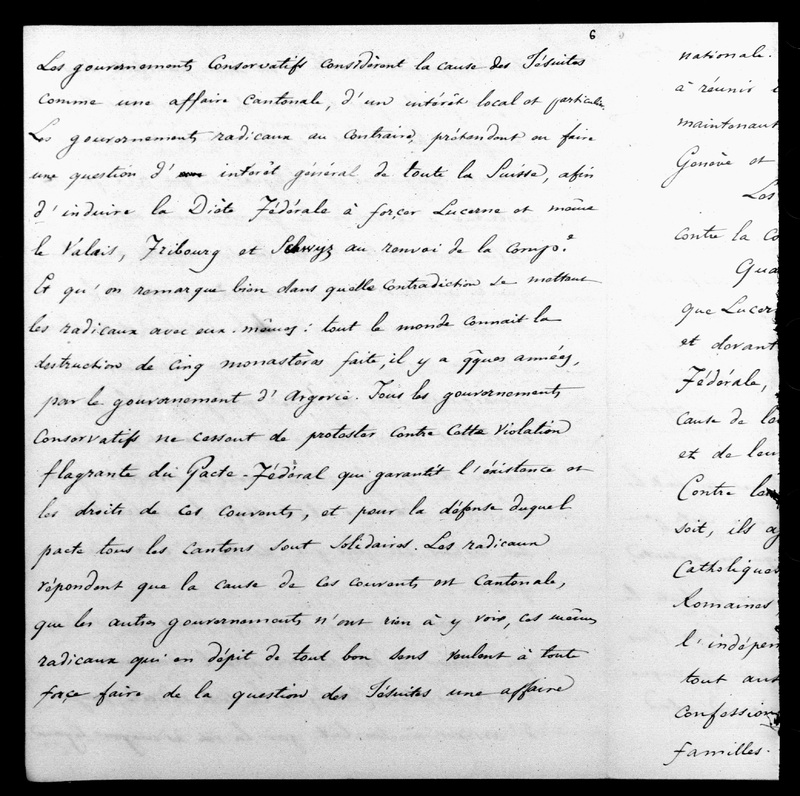 6
Les gouvernements Conservatifs considèrent la cause des Jésuites
comme une affaire cantonale, d'un intérêt local et particulier.
Les gouvernements radicaux au contraire, prétendent en faire
une question d' intérêt général de toute la Suisse, afin
d'induire la Diète Fédérale à forçer Lucerne et même
le Valais, Fribourg et Schwyz au renvoi de la Compe.
Et qu'on remarque bien dans quelle Contradiction se mettent
les radicaux avec eux-mêmes: tout le monde connait la
destruction de cinq monastères faite, il y a qques années,
par le gouvernement d'Argovie. Tous les gouvernements
Conservatifs ne cessent de protester Contre Cette Violation
flagrante du Pacte-Fédéral qui garantit l'éxistence et
les droits de ces couvents, et pour la défense duquel
pacte tous les cantons sont solidaires. Les radicaux
répondent que la cause de ces couvents est Cantonale,
que les autres gouvernements n'ont rien à y voir, ces mêmes
radicaux qui en dépit de tout bon sens veulent à toute
forçe faire de la question des Jésuites une affaire
nationale.
à réunir
maintenant
Genève et
Les
contre la co
Qua
que Lucer
et devant
Fédérale,
cause de le
et de leu
Contre
soit, ils a
Catholiques
Romaines
l'indépen
tout aut
Confession
familles.